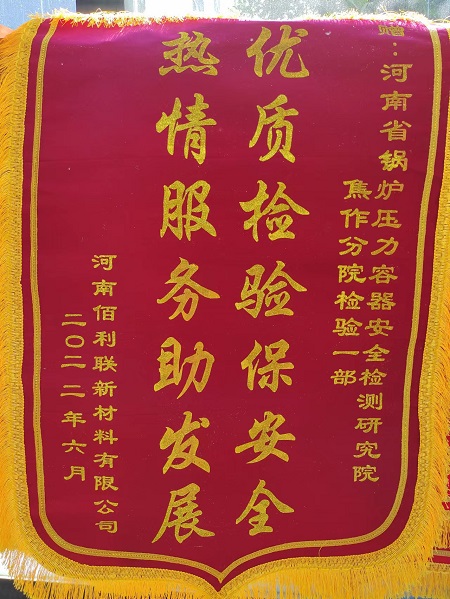 赠:河南省锅炉压力容器安全检测研究院
焦作分院检验一部
优质检验保安全
热情服务助发展
河南佰利联新材料有限公司
二〇二二年六月